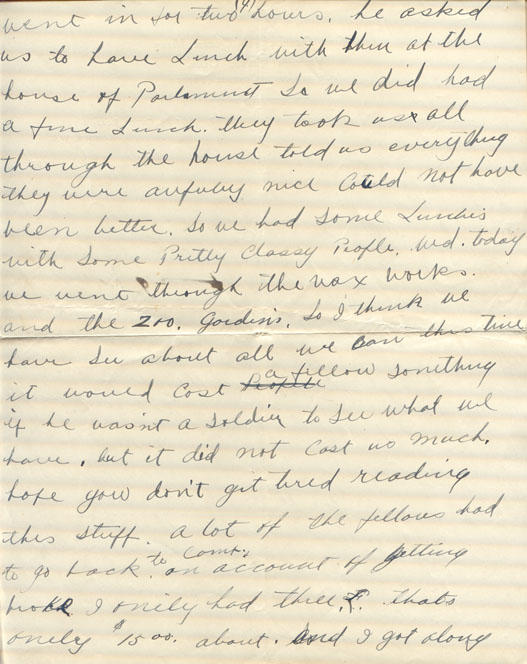 went in for two hours. he asked
us to have Lunch with them at the
house of Parlament So we did had
a fine Lunch. they took us all
through the house told us everything
they were awfuly nice Could not have
been better. So we had some Lunchis
with Some Pritty Classy People. Wd. today
we went through the wax works.
and the Zoo. Gordins. So I think we
have See about all we Can this time
it would Cost a fellow Something
if he wasn't a Soldier to See what we
have. but it did not Cost us much.
hope you don't git tired reading
this stuff. a lot of the fellows had
to go back to Camp. on account of getting
broke I onily had three £. thats
onily $15.00. about. And I got along